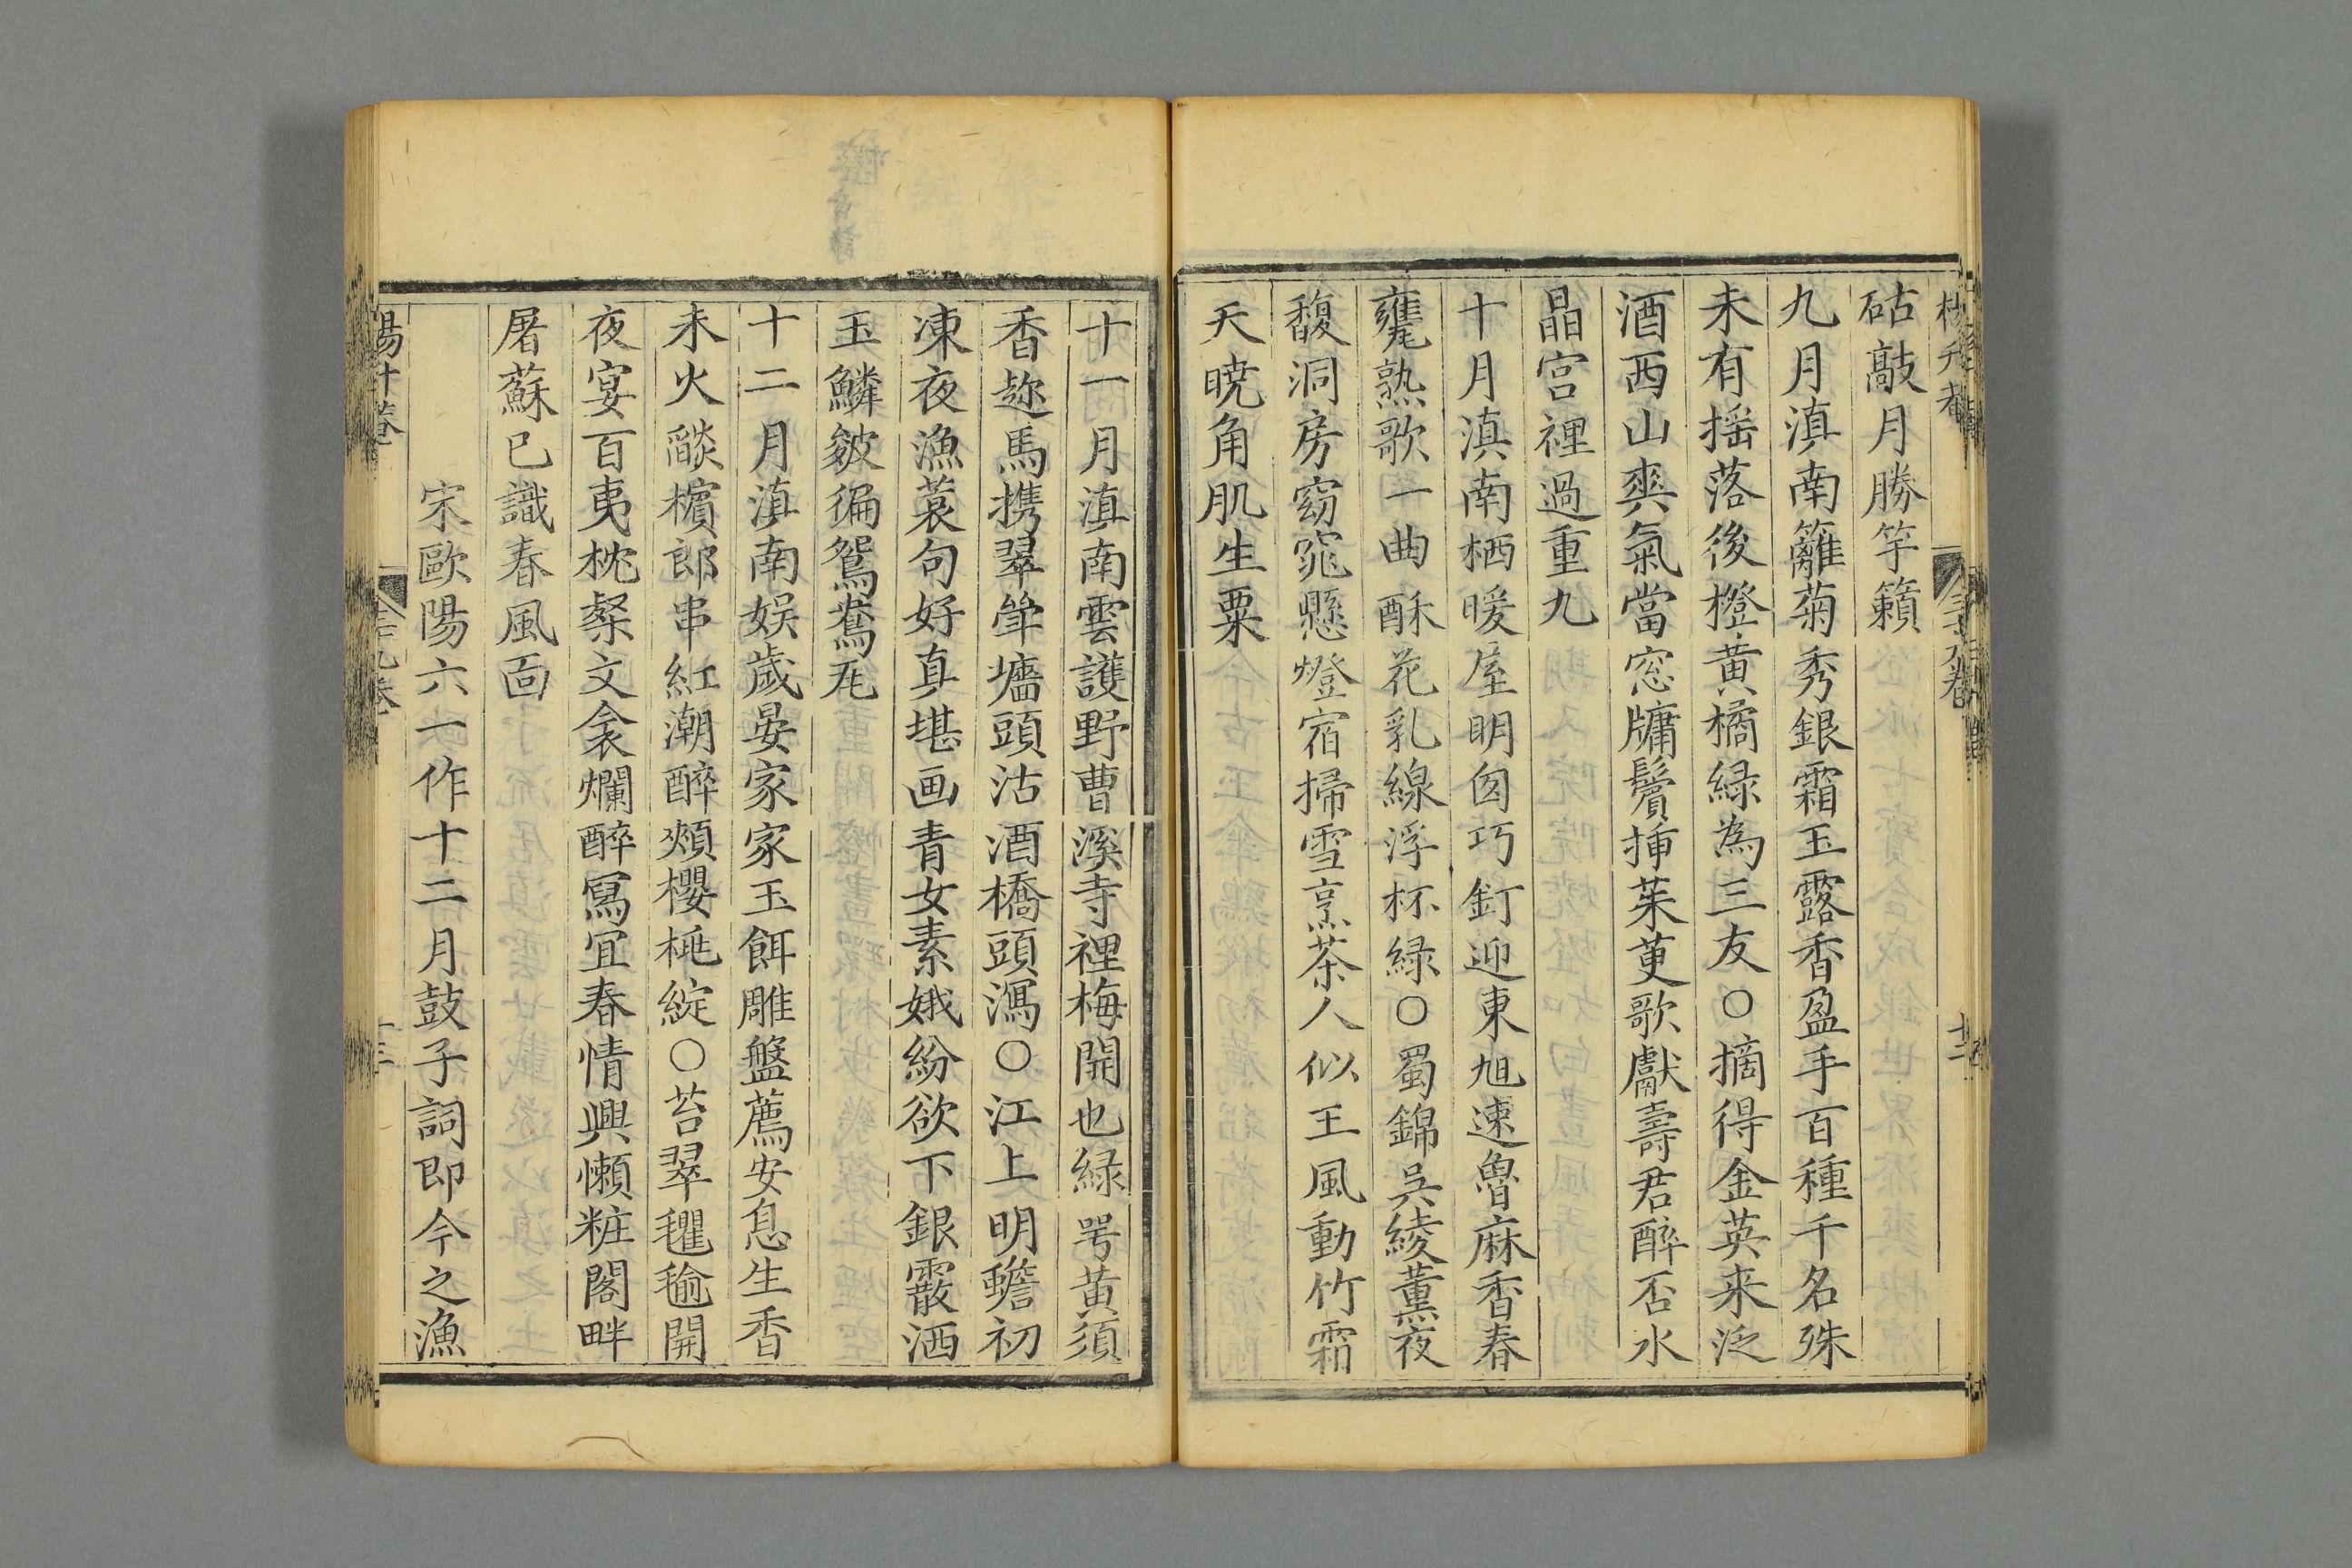 砧敲月勝竽籟
九月滇南籬菊秀銀霜玉露香盈手百種千名殊
未有揺落後橙黄橘緑為三友○摘得金英来泛
酒西山爽氣當窓牗鬢揷茱萸歌獻壽君醉否水
晶宫裡過重九
十月滇南栖暖屋明囱巧釘迎東旭速魯麻香春
甕熟歌一曲酥花乳線浮杯緑○蜀錦吳綾薰夜
馥洞房窈窕懸燈宿掃雪烹茶人似玉風動竹霜
天暁角肌生粟
十一月滇南雲護野曹溪寺裡梅開也緑咢黄須
香趂馬携翠斝墻頭沽酒橋頭瀉○江上明蟾初
凍夜漁蓑句好真堪画青女素娥紛欲下銀霰洒
玉鱗皴徧鴛鴦瓦
十二月滇南娱歳晏家家玉餌雕盤薦安息生香
未火燄檳郎串紅潮醉頰櫻桃綻○苔翠氍毹開
夜宴百夷枕粲文衾爛醉寫宜春情興懶粧閣畔
屠蘇已識春風面
宋歐陽六一作十二月鼓子詞即今之漁